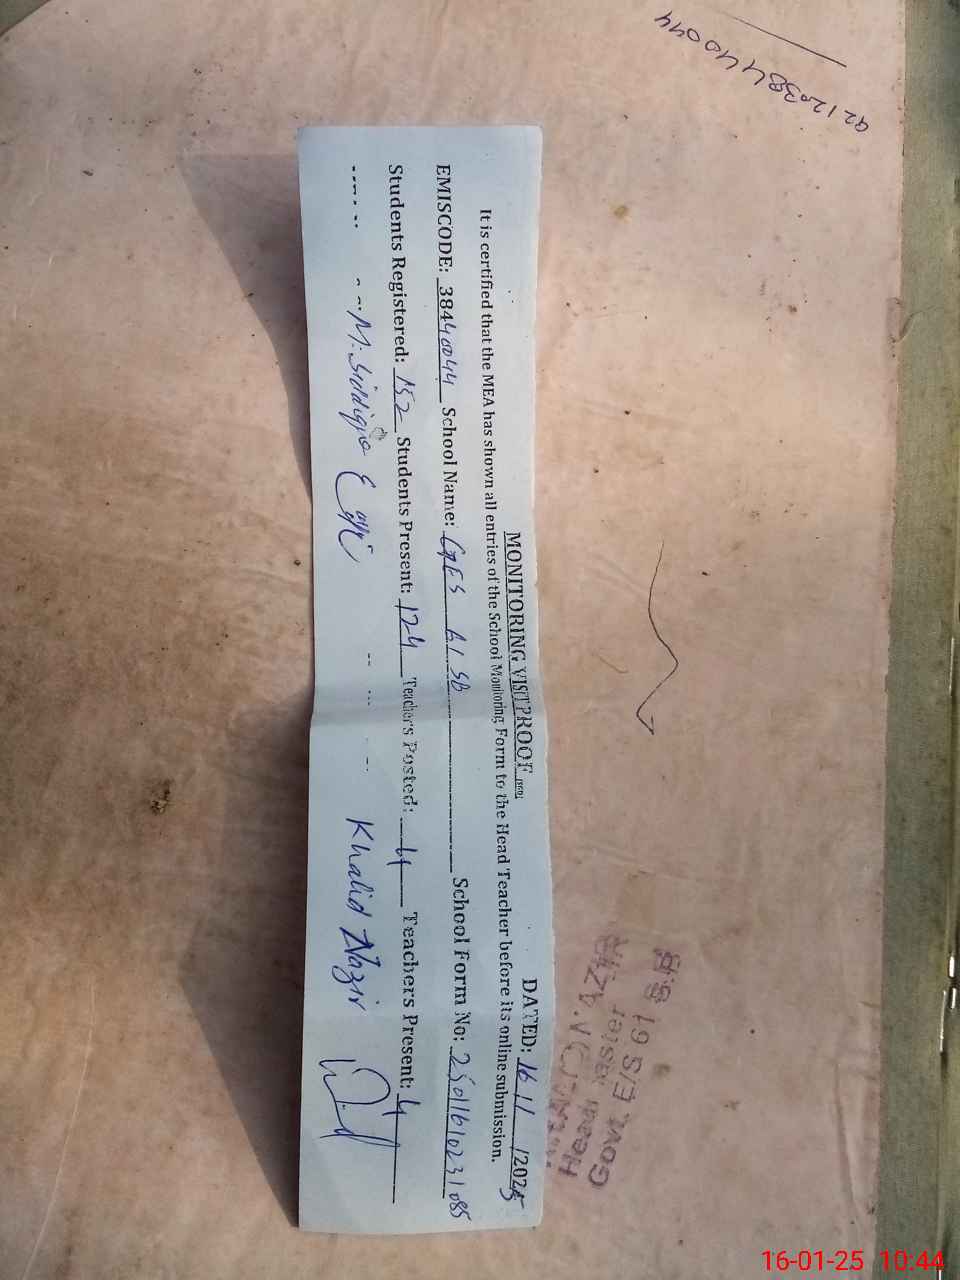 MONITORING VISIT PROOF (SED)
DATED: 16 / 1 /2025
It is certified that the MEA has shown all entries of the School Monitoring Form to the Head Teacher before its online submission.
EMISCODE: 38440044 School Name: GES 61 SB School Form No: 25011610231085
Students Registered: 152 Students Present: 124 Teachers Posted: 4 Teachers Present: 4
M. Siddique Khalid Nazir
Head Master
Govt. E/S 61 S.B
16-01-25 10:44